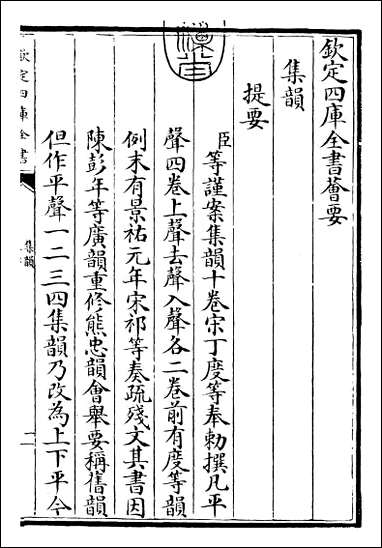 欽定四庫全書薈要
集韻
提要
臣等謹案集韻十卷宋丁度等奉勅撰凡平
聲四卷上聲去聲入聲各二卷前有度等韻
例末有景祐元年宋祁等奏疏殘文其書因
陳彭年等廣韻重修熊忠韻會舉要稱舊韻
但作平聲一二三四集韻乃改為上下平今
欽定四庫全書
集韻
一